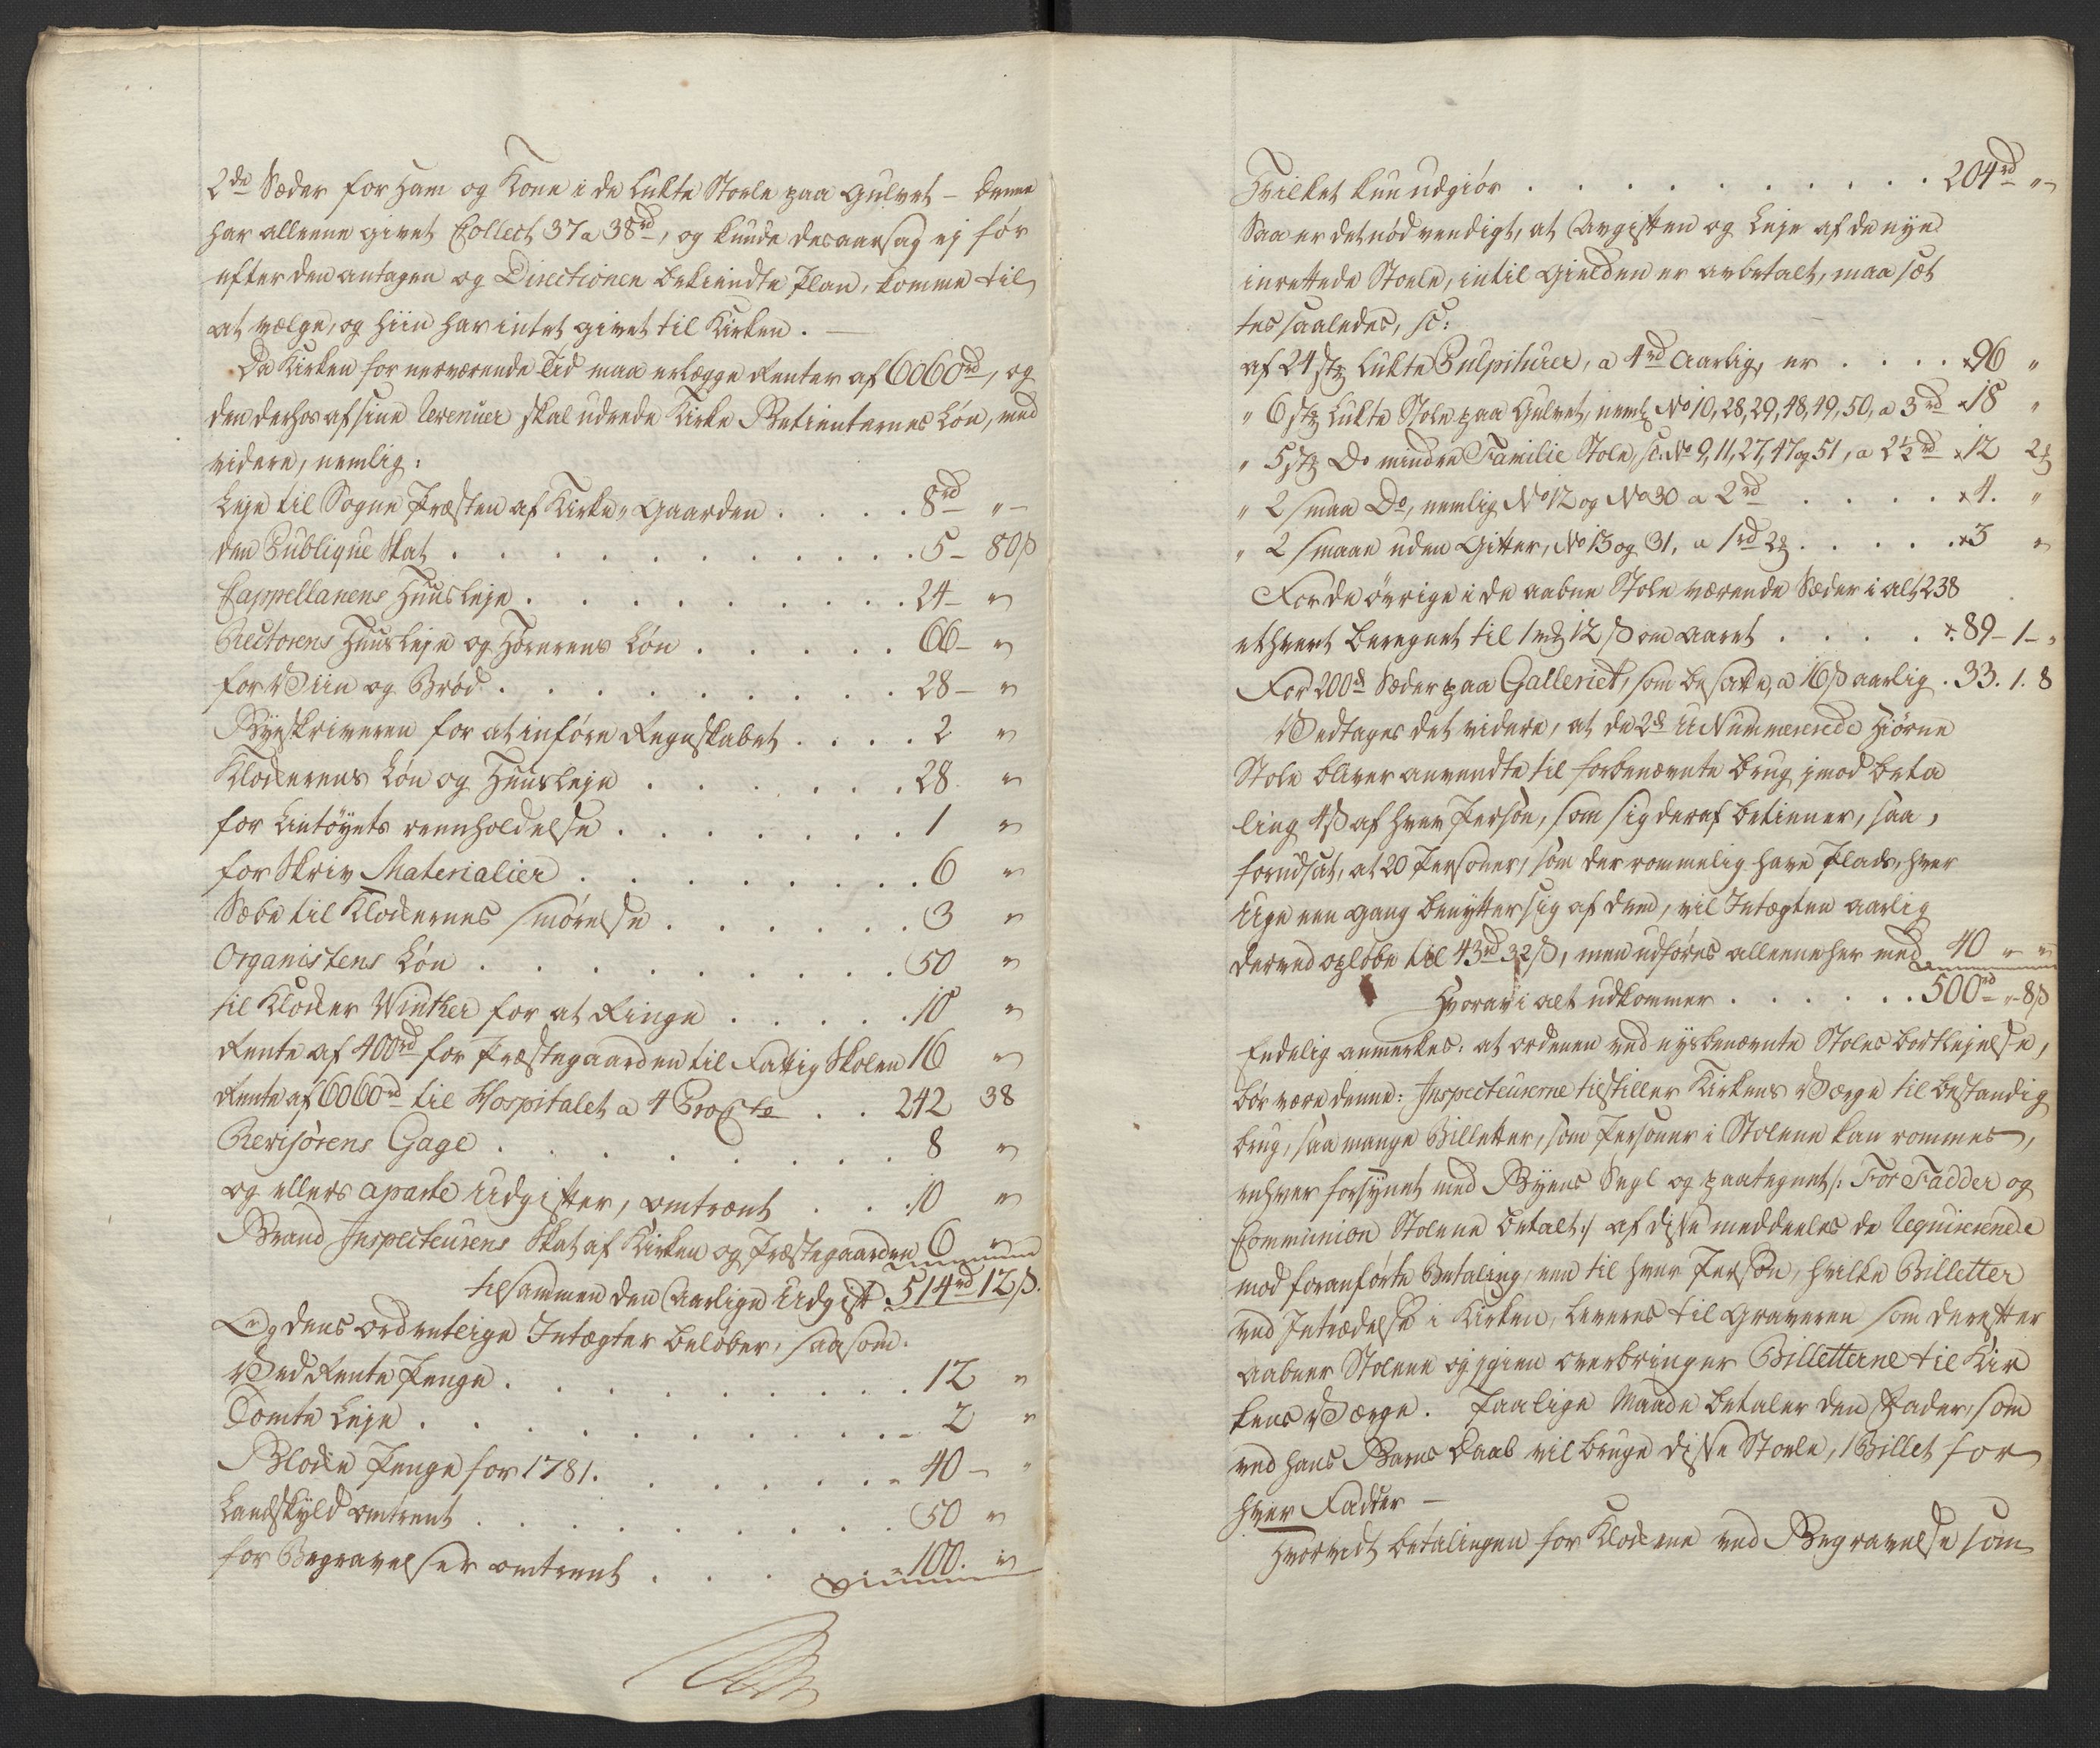 2de Sæder for Ham og Kone i de Lukte Stoele paa Gulvet – denne
har alleene givet Collect 37 a 38rd, og kunde desaarsag ej før
efter den antagen og Directionen bekiendte Plan, komme til
at vælge, og hiin har intet givet til Kirken. –
Da Kirken for nærværende Tid maa erlægge Renter af 6060rd, og
den derhos af sine Revenuer skal udrede Kirke Betienternes Løn, med
videre, nemlig:
Leje til Sogne Præsten af Kirke-Gaarden . . . . 8rd „ –
den Publique Skat . . . . . . . 5 – 80ß
Cappellanens Huusleje . . . . . . . 24 – „
Rectorens Huusleje og Hørerens Løn . . . . . 66 – „
for Viin og Brød . . . . . . . 28 – „
Byeskriveren for at inføre Regnskabet . . . . 2 „
Klokkerens Løn og Huusleje . . . . . . 28. „
for Lintøyets reenholdelse . . . . . . 1 „
for Skriv Materialier . . . . . . . 6 „
Sæbe til Klokkernes smørelse . . . . . . 3 „
Organistens Løn . . . . . . . . 50 „
til Klokker Winther for at Ringe . . . . . 10 „
Rente af 400rd for Præstegaarden til Fattig Skolen 16 „
Rente af 6060rd til Hospitalet a 4 ProCto . . 242 38
Revisorens Gage . . . . . . . . 8 „
og ellers aparte Udgifter, omtrent . . . 10 „
Brand Inspecteurens Skat af Kirken og Præstegaarden 6 „
tilsammen den Aarlige Udgift . 514rd 12ß.
Og dens ordentlige Indtægter beløber, saasom.
Ved Rente Penge . . . . . . . . 12 „
Tomte Leje . . . . . . . . . 2 „
Blokke Penge for 1781. . . . . . . 40 – „
Landskyld omtrent . . . . . . . 50 „
for Begravelser omtrent . . . . . 100. „
Hvilket kun udgiør . . . . . . . . . . 204rd „ –
Saa er det nødvendigt, at Avgiften og Leje af de nye
inrettede Stoele, intil Gielden er avbetalt, maa sæt
tes saaledes, sc:
af 24 stk Lukte Pulpiturer, a 4rd Aarlig, er . . . . 96 „
„ 6 stk Lukte Stole paa Gulvet, neml No 10, 28, 29, 48, 49, 50, a 3rd 18 „
„ 5 stk Do mindre Familie Stole, sc No 9, 11, 27, 47 og 51, a 2½rd 12 2
„ 2 smaa Do, nemlig No 12 og No 30 a 2rd . . . . . 4. „
„ 2 smaae uden Gitter, No 13 og 31, a 1rd 2 . . . . . 3 „
For de øvrige i de aabne Stole værende Sæder i alt 238
ethvert beregnet til 1 mk 12 ß om Aaret . . . . 89 – 1 – „
For 200de Sæder paa Galleriet, som besatte, a 16ß aarlig . 33. 1. 8
Vedtages det videre, at de 2de UNummererede Hiørne
Stole bliver anvendte til forbenævnte brug, imod beta
ling 4ß af hver Person, som sig deraf betiener, saa,
forudsat, at 20 Personer, som der rommelig have Plads, hver
Uge een gang benytter sig af dem, vil Intægten aarlig
derved opløbe til 43rd 32ß, men udføres alleene her med 40 „ „
Hvorav i alt udkommer . . . . . . 500rd „ 8ß
Endelig anmerkes: at ordenen ved nysbenævnte Stoles bortlejelse,
bør være denne: Inspecteurerne tilstiller Kirkens Værge til bestandig
brug, saa mange Billetter, som Personer i Stolene kan rommes,
enhver forsynet med Byens Segl og paategnet /: For Fadder og
Communion Stolene betalt :/ af disse meddeeles de Requirerende
mod foranførte Betaling, een til hver Person, hvilke Billetter
ved Intrædelse i Kirken, leveres til Graveren som derefter
aabner Stolene og igien overbringer Billetterne til Kir
kens Værge. Paa lige Maade betaler den Fader, som
ved hans Barns Daab vil bruge disse Stoele, 1 Billet for
hver Fadder –
Hvorvidt betalingen for Klokkene ved Begravelse som